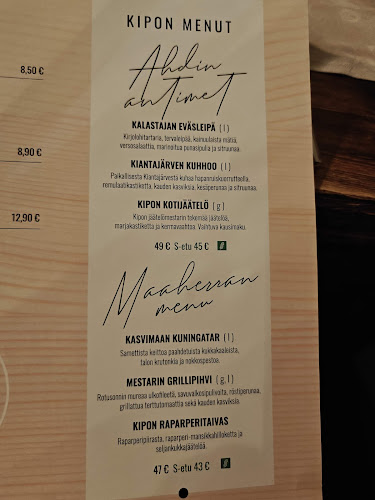 8,50 €
8,90 €
12,90 €
KIPON MENUT
Ahdin
antimet
KALASTAJAN EVÄSLEIPÄ ( l )
Kirjolohitartaria, tervaleipää, kainuulaista mätiä,
versosalaattia, marinoitua punasipulia ja sitruunaa.
KIANTAJÄRVEN KUHHOO ( l )
Paikallisesta Kiantajärvestä kuhaa hapanruiskuorrutteella,
romulaabkastiketta, kauden kasviksia, kesäperunaa ja sitruunaa.
KIPON KOTIJÄÄTELÖ ( g )
Kipon jäätelömestarin tekemää jäätelöä,
marjakastiketta ja kermavaahtoa. Vaihtuva kausimaku.
49 € S-etu 45 €
Maaherran
menu
KASVIMAAN KUNINGATAR ( l )
Samettista keittoa paahdetuista kukkakaaleista,
talon krutonkia ja nokkospestoa.
MESTARIN GRILLIPIHVI ( g, l )
Rotusonnin mureaa ulkofileetä, savuvalkosipulivoita, röstiperunaa,
grillattua terttutomaattia sekä kauden kasviksia.
KIPON RAPARPERITAIVAS
Raparperipiirasta, raparperi-mansikkahilloketta ja
seljankukkajäätelöä.
47 € S-etu 43 €